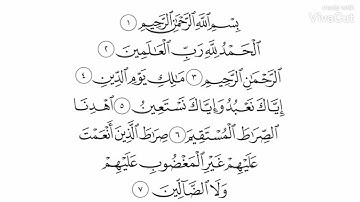 made with
VivaCut
بِسْمِ ٱللَّهِ ٱلرَّحْمَٰنِ ٱلرَّحِيمِ ١
ٱلْحَمْدُ لِلَّهِ رَبِّ ٱلْعَالَمِينَ ٢
ٱلرَّحْمَٰنِ ٱلرَّحِيمِ ٣ مَالِكِ يَوْمِ ٱلدِّينِ ٤
إِيَّاكَ نَعْبُدُ وَإِيَّاكَ نَسْتَعِينُ ٥ ٱهْدِنَا
ٱلصِّرَاطَ ٱلْمُسْتَقِيمَ ٦ صِرَاطَ ٱلَّذِينَ أَنْعَمْتَ
عَلَيْهِمْ غَيْرِ ٱلْمَغْضُوبِ عَلَيْهِمْ
وَلَا ٱلضَّالِّينَ ٧